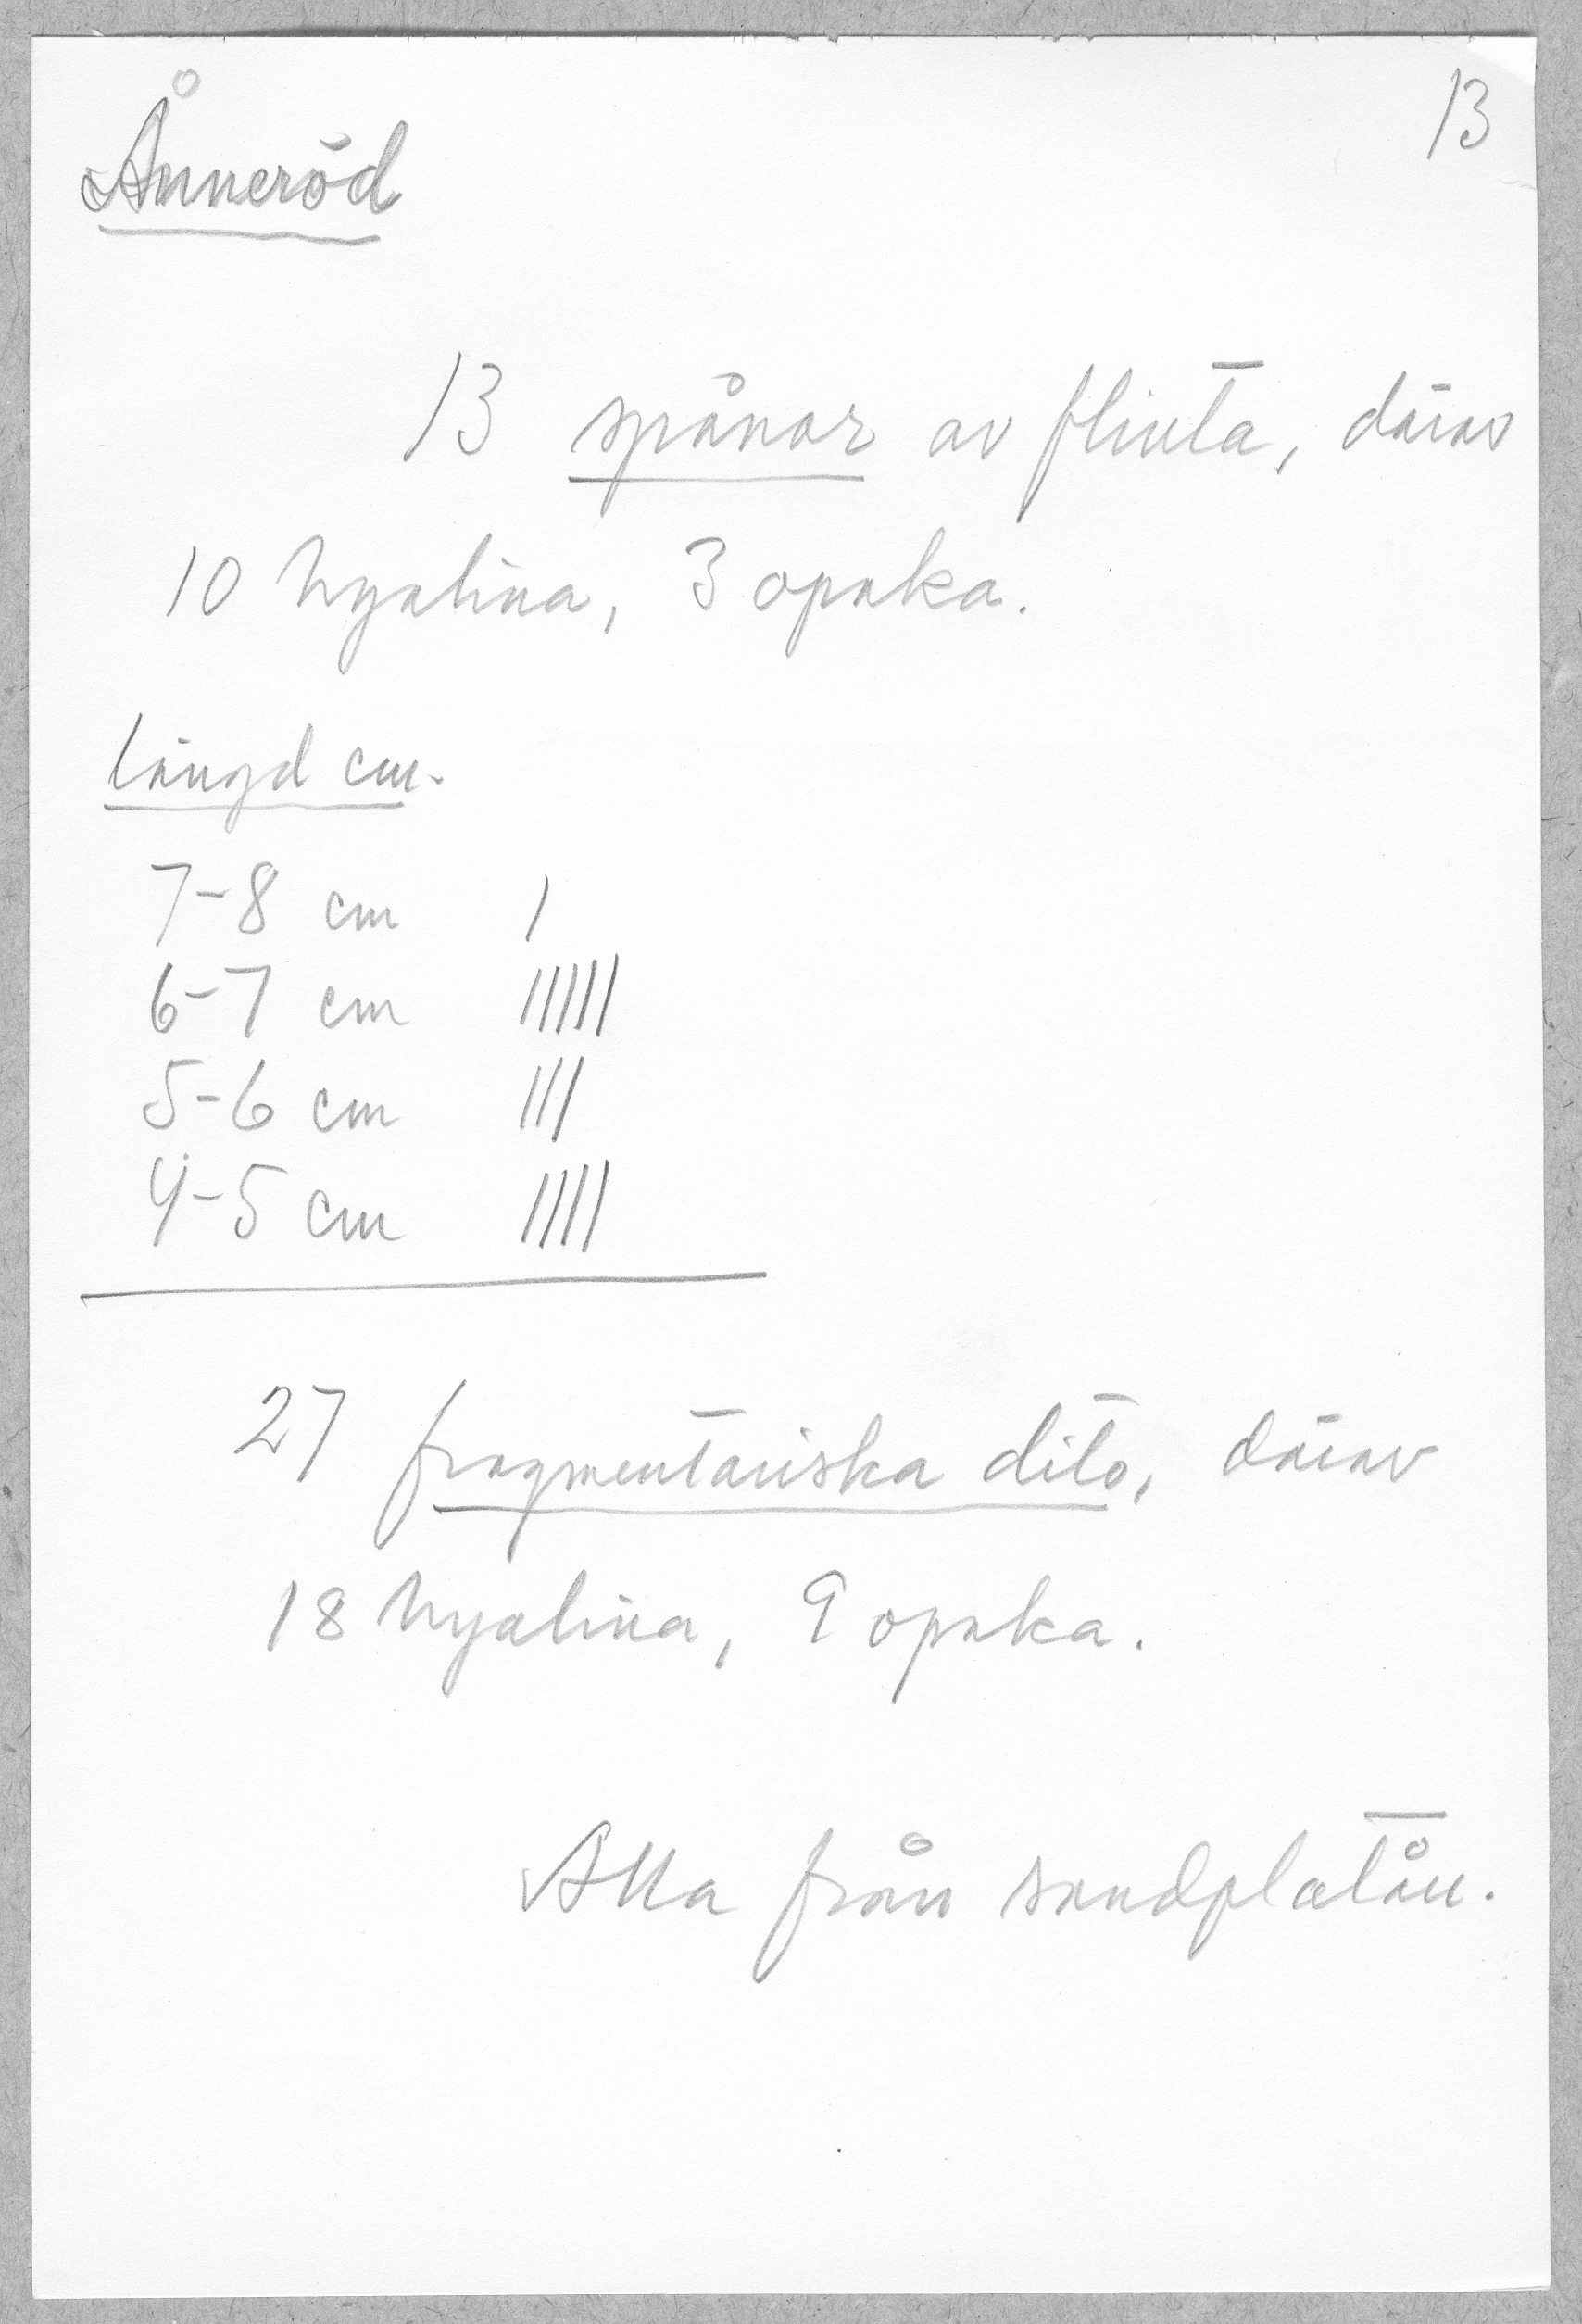 13
Ånneröd
13 spånor av flinta, därav
10 hyalina, 3 opaka.
Längd cm.
7-8 cm /
6-7 cm /////
5-6 cm ///
4-5 cm ////
27 fragmentariska dito, därav
18 hyalina, 9 opaka.
Alla från sandplatån.